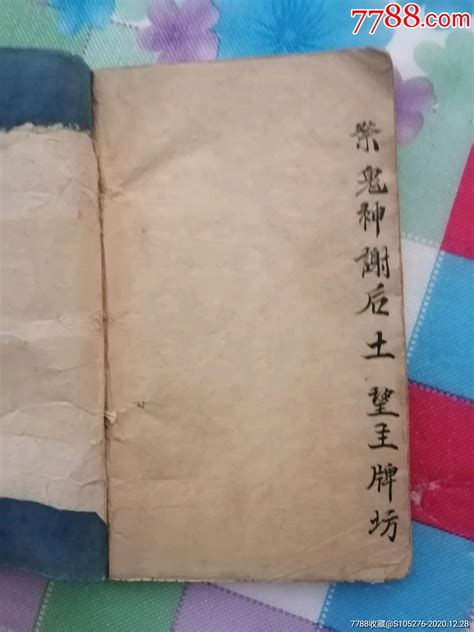 7788.com
祭鬼神謝后土 塋主牌坊
7788收藏@S105276-2020.12.28